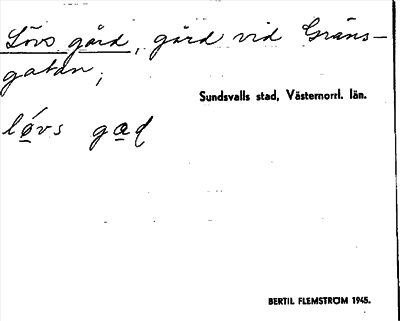 Lövs gård, gård vid Gräns-
gatan;
Sundsvalls stad, Västernorrl. län.
lǿvs gɑd
BERTIL FLEMSTRÖM 1945.